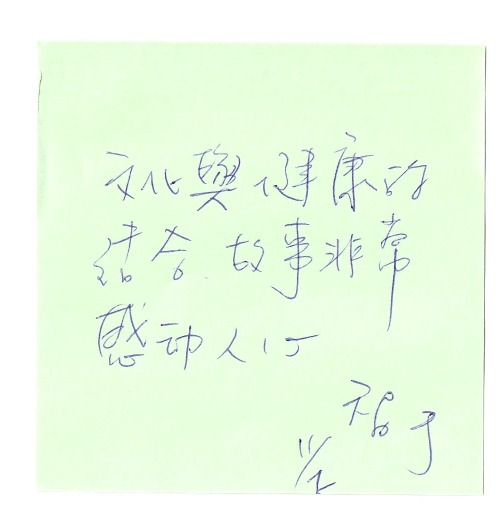 文化與健康的
結合.故事非常
感动人心
11/2